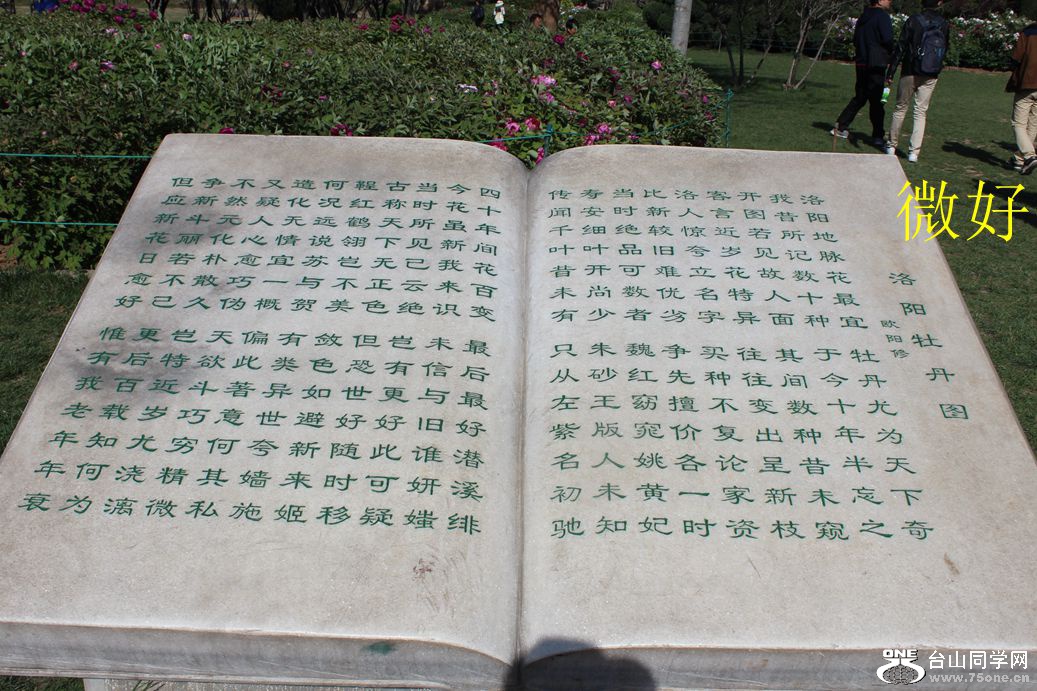 洛阳牡丹图
欧阳修
洛阳地脉花最宜 牡丹尤为天下奇
我昔所记数十种 于今十年半忘之
开图若见故人面 其间数种昔未窥
客言近岁花特异 往往变出呈新枝
洛人惊夸立名字 买种不复论家资
比新较旧难优劣 争先擅价各一时
当时绝品可数者 魏红窈窕姚黄妃
寿安细叶开尚少 朱砂玉版人未知
传闻千叶昔未有 只从左紫名初驰
四十年间花百变 最后最好潜溪绯
今花虽新我来识 未信与旧谁妍媸
当时所见己云绝 岂有更好此可疑
古称天下无正色 但恐世好随时移
鞓红鹤翎岂不美 敛色如避新来姬
何况远说苏与贺 有类异世夸嫱施
造化无情宜一概 偏此著意何其私
又疑人心愈巧伪 天欲斗巧穷精微
不然元化朴散久 岂特近岁尤浇漓
争新斗丽若不己 更后百载知何为
但应新花日愈好 惟有我老年年衰
微好
ONE 台山同学网
www.75one.cn